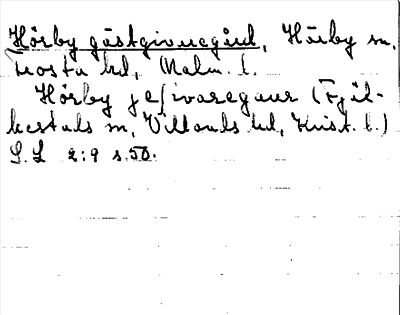 Hörby gästgivuegård, Hörby sn,
Frosta hd, Malm. l.
Hörby jefwaregaur (Fjäl-
kestads sn, Villands hd, Krist. l.)
S.L 2:9 s. 50.